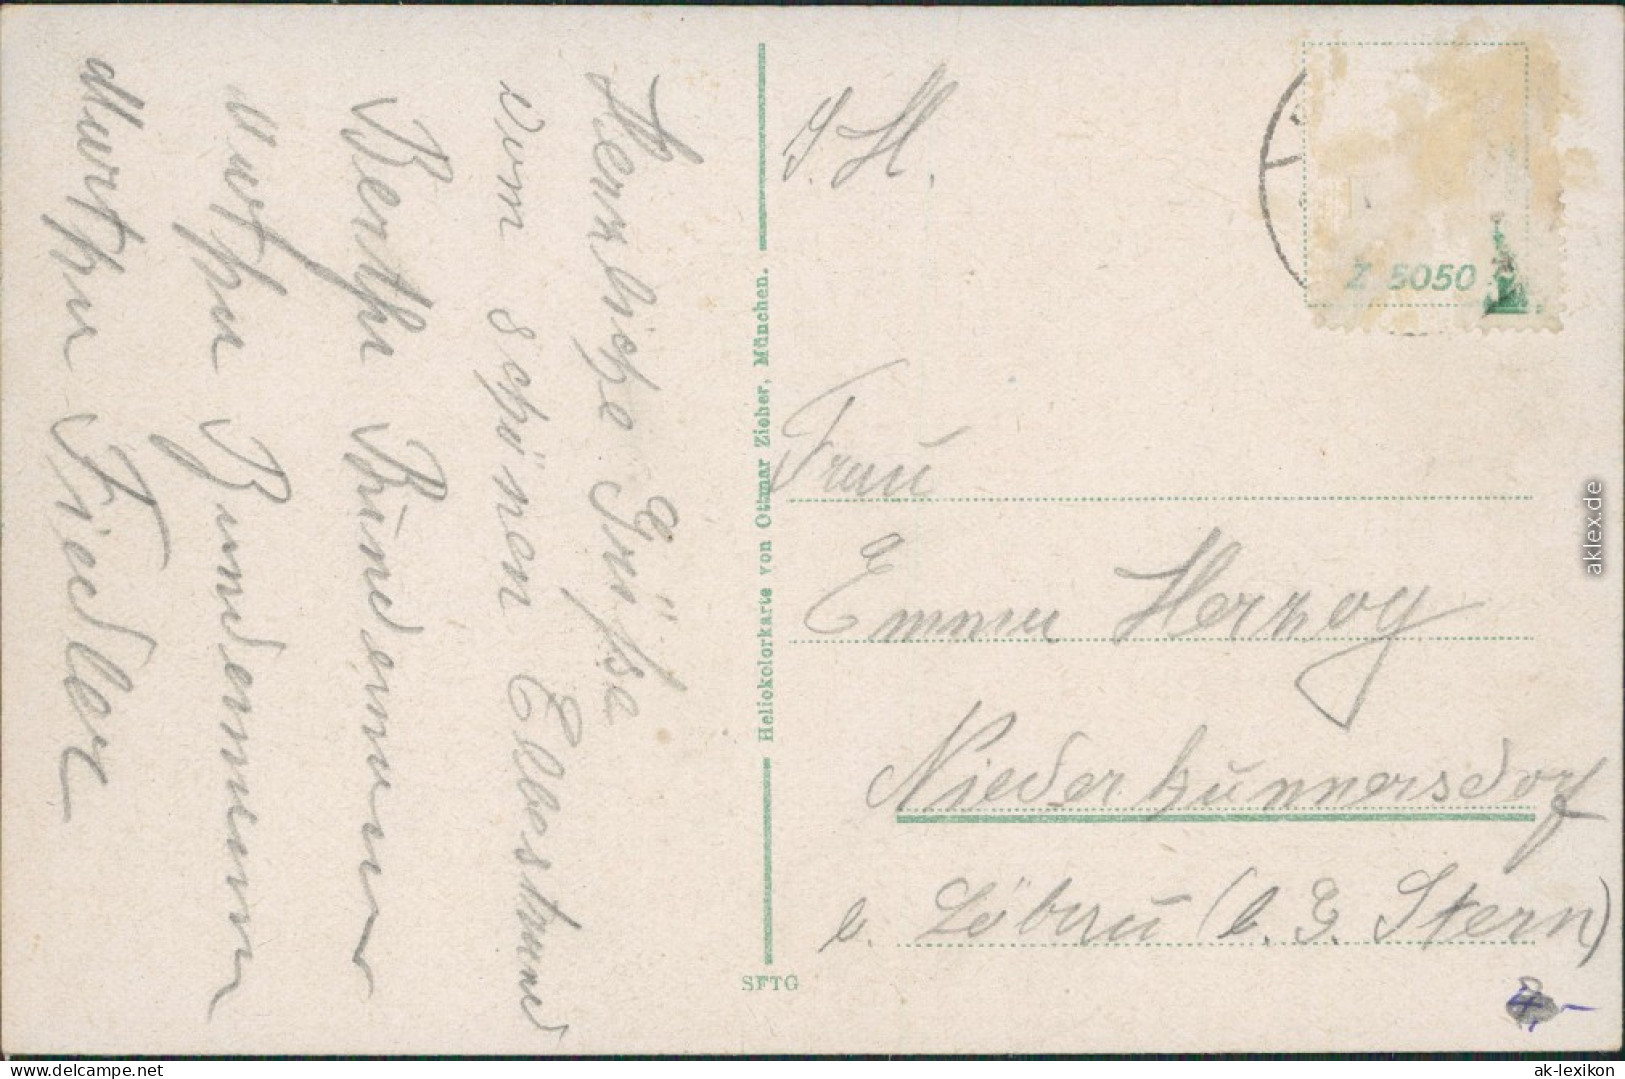 Herzliche Grüße
vom schönen Elbestrand
Bertha Bündemann
Bundemann
Martha Fiedler
Heliokolorkarte von Ottmar Zieher, München.
SFTG
Z 5050
Frau
Emma Herzog
Niederkunnersdorf
b. Löbau (b. G. Stern)
4,-
aklex.de
www.delcampe.net
ak-lexikon